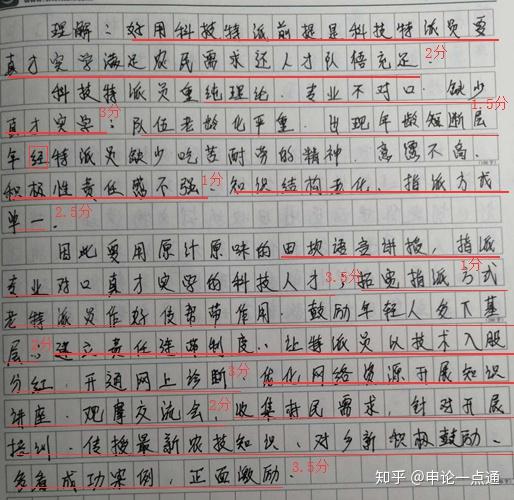 理解：好用科技特派前提是科技特派员要
真才实学满足农民需求还人才队伍充足.
2分
科技特派员重纯理论. 专业不对口. 缺少
3分
1.5分
真才实学；队伍老龄化严重. 出现年龄短断层
年经特派员缺少吃苦耐劳的精神. 意愿不高.
积极性责任感不强. 知识结构老化. 指派方式
1分
单一.
2.5分
因此要用原汁原味的田坎语言讲授，指派
专业对口真才实学的科技人才；拓宽指派方式
3.5分
1分
老特派员作好传帮带作用. 鼓励年轻人多下基
层；建立责任连带制度；让特派员以技术入股
2分
分红. 开通网上诊断. 优化网络资源开展知识
3分
讲座. 观摩交流会. 收集村民需求，针对开展
2分
培训. 传授最新农技知识. 对乡新积极鼓励.
多看成功案例，正面激励.
3.5分
知乎 @申论一点通